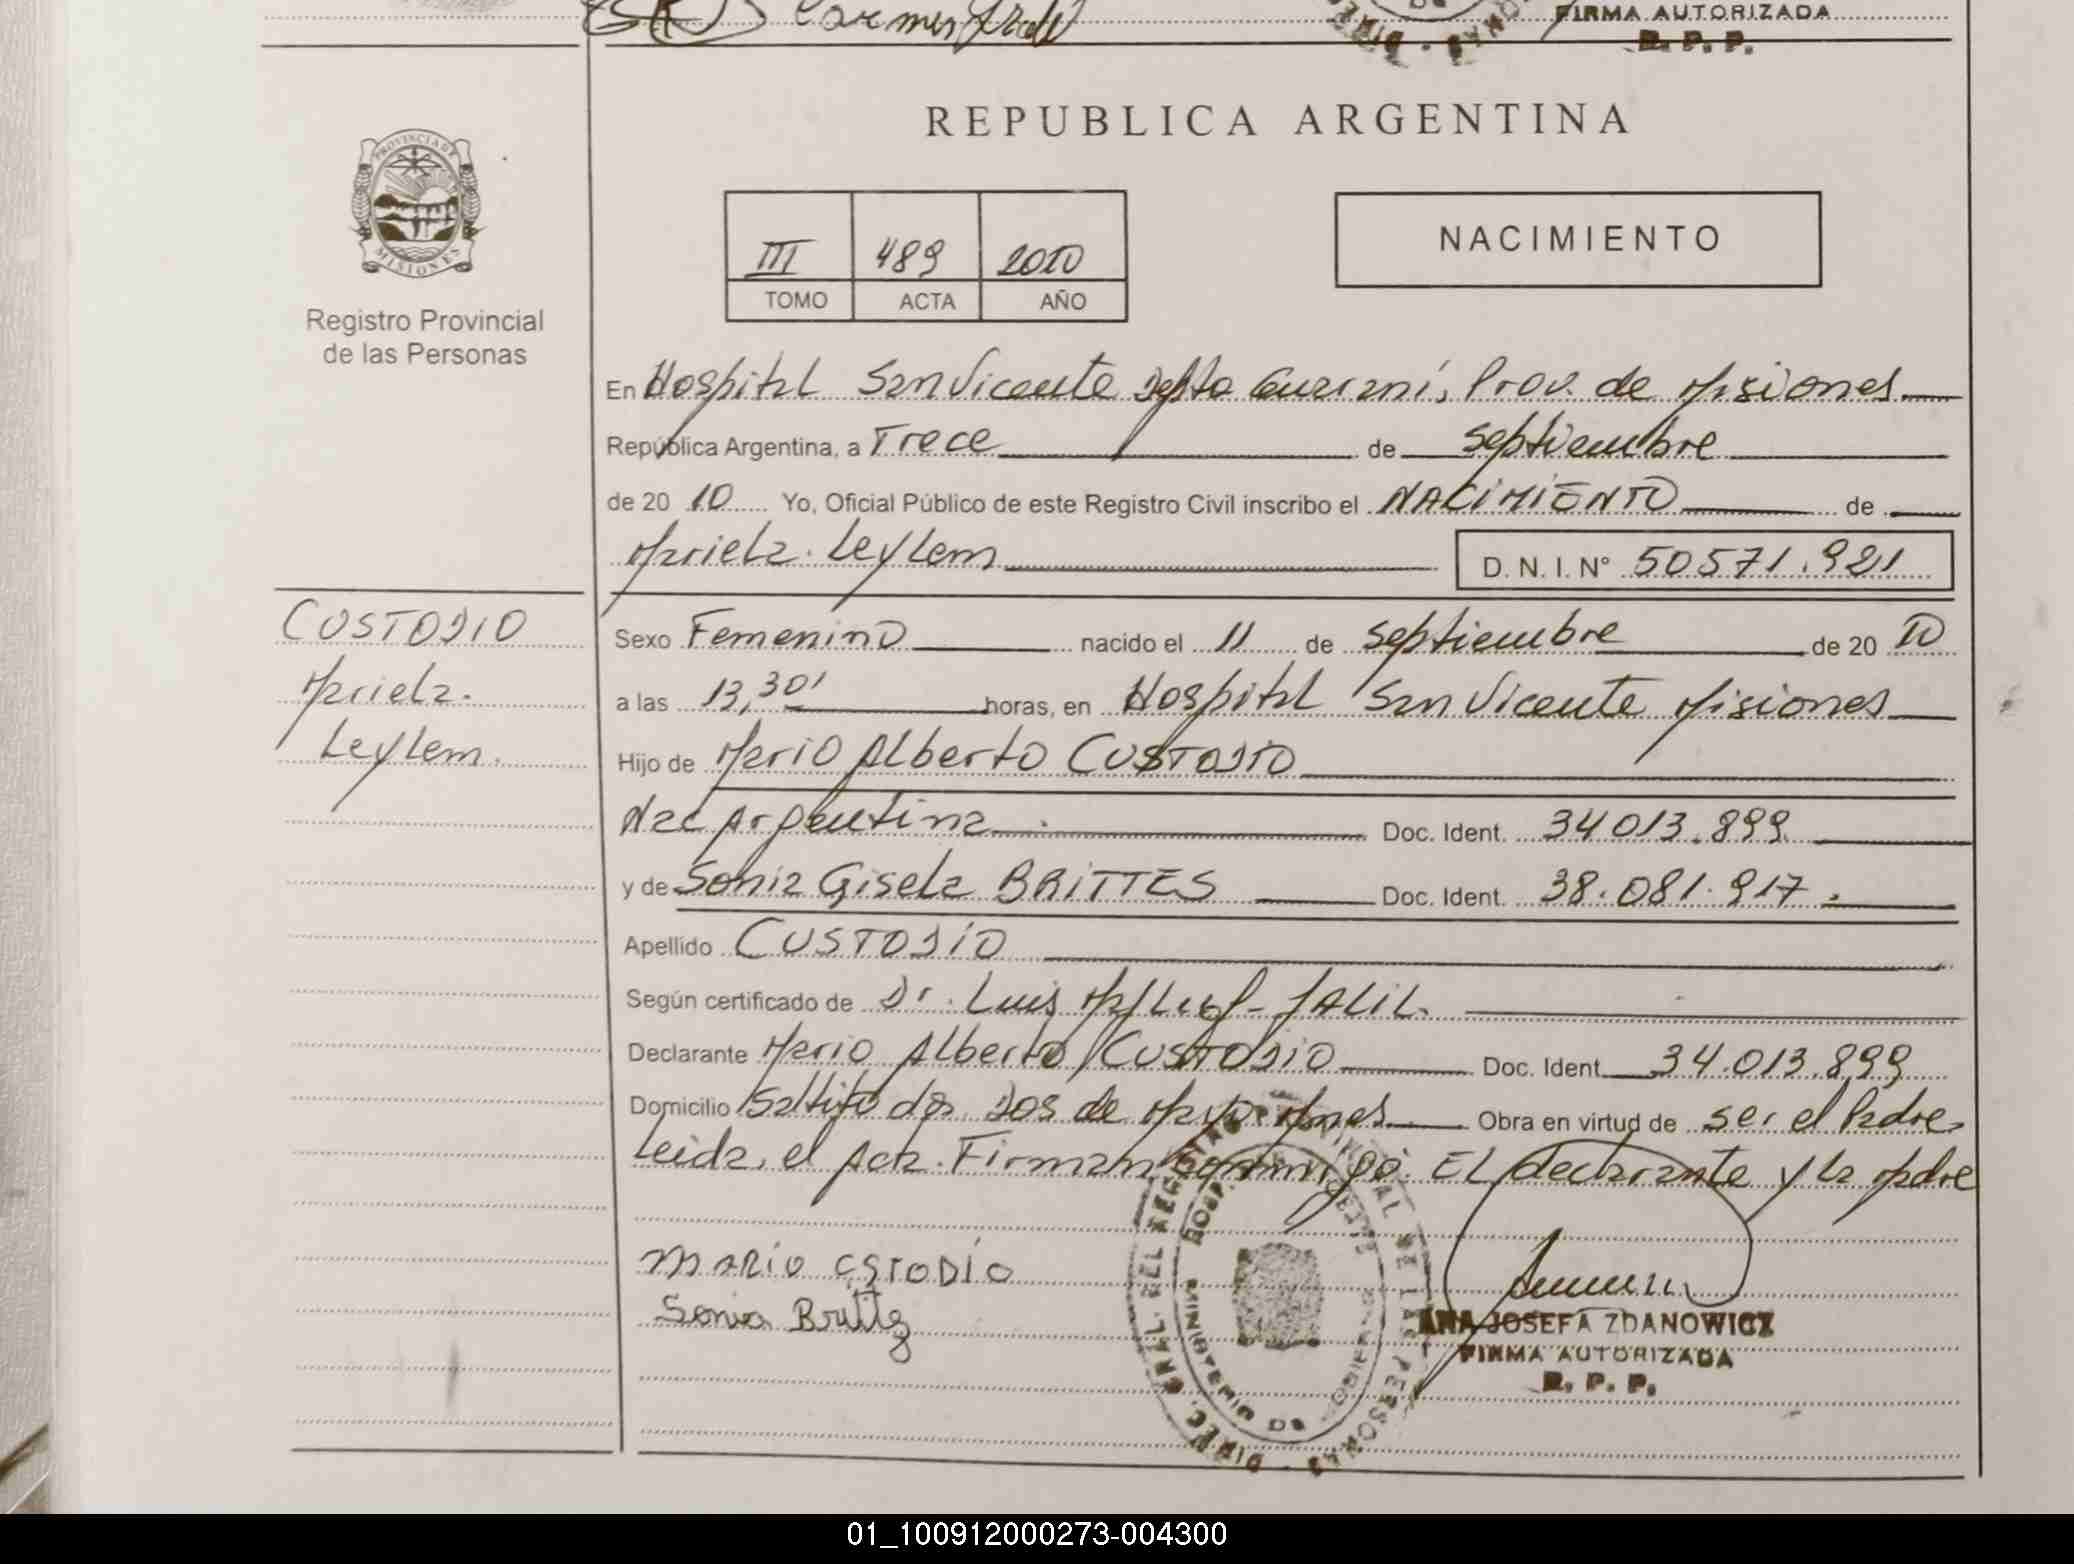 Carmen
FIRMA AUTORIZADA
R. P. P.
REPUBLICA ARGENTINA
PROVINCIA DE
MISIONES
Registro Provincial
de las Personas
III 489 2010
TOMO ACTA AÑO
NACIMIENTO
En Hospital San Vicente Depto Guaraní, Prov. de Misiones
República Argentina, a Trece de Septiembre
de 20 10 Yo, Oficial Público de este Registro Civil inscribo el NACIMIENTO de
Mariela Leylem D. N. I. N° 50571.921
CUSTODIO
Mariela
Leylem.
Sexo Femenino nacido el 11 de Septiembre de 20 10
a las 13,30' horas, en Hospital San Vicente Misiones
Hijo de Mario Alberto CUSTODIO
Nac Argentina Doc. Ident. 34013.899
y de Sonia Gisela BRITTES Doc. Ident. 38.081.917
Apellido CUSTODIO
Según certificado de Dr. Luis JALIL.
Declarante Mario Alberto CUSTODIO Doc. Ident. 34.013.899
Domicilio Saltito dos Dos de Obra en virtud de ser el Padre
Leida, el Acta. Firman conmigo. El declarante y la Madre
MARIO CSTODIO
Sonia
ANA JOSEFA ZDANOWICZ
FIRMA AUTORIZADA
R. P. P.
01_100912000273-004300